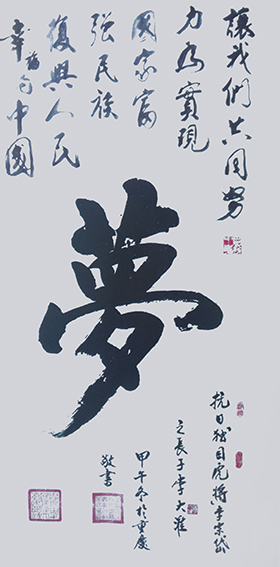 讓我們共同努
力為實現
國家富
強民族
復興人民
幸福的中國
夢
抗日獨目虎將李宗岱
之長子李大淮
甲午冬於重慶
敬書